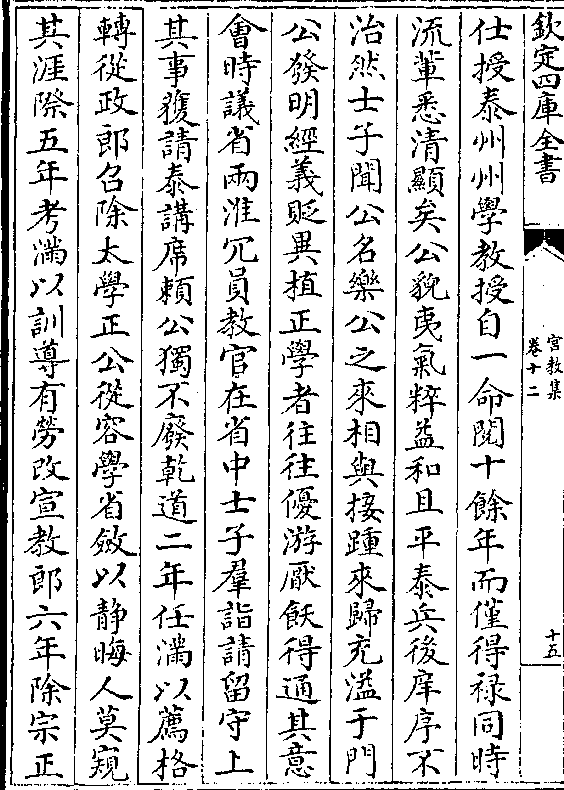 欽定四庫全書
宮教集
卷十二
十五
仕授泰州州學教授自一命閱十餘年而僅得禄同時
流輩悉清顯矣公貌夷氣粹益和且平泰兵後庠序不
治然士子聞公名樂公之來相與接踵來歸充溢于門
公發明經義貶異植正學者往往優游厭飫得通其意
會時議省兩淮冗員教官在省中士子羣詣請留守上
其事獲請泰講席頼公獨不廢乾道二年任滿以薦格
轉從政郎召除太學正公從容學省斂以静晦人莫窺
其涯際五年考滿以訓導有勞改宣教郎六年除宗正